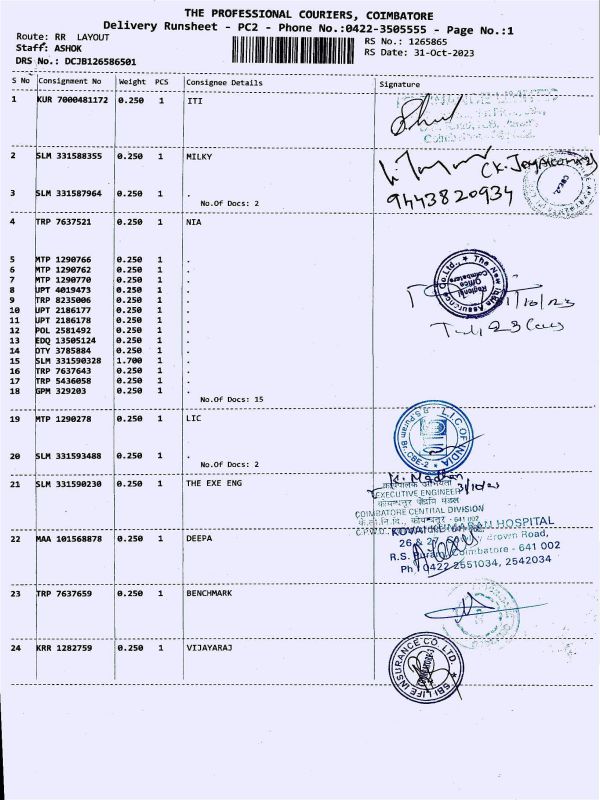 THE PROFESSIONAL COURIERS, COIMBATORE
Delivery Runsheet - PC2 - Phone No.:0422-3505555 - Page No.:1
Route: RR LAYOUT
Staff: ASHOK
DRS No.: DCJB126586501
RS No.: 1265865
RS Date: 31-Oct-2023
S No Consignment No Weight PCS Consignee Details Signature
1 KUR 7000481172 0.250 1 ITI
2 SLM 331588355 0.250 1 MILKY
9443820934
3 SLM 331587964 0.250 1 .
No.Of Docs: 2
4 TRP 7637521 0.250 1 NIA
5 MTP 1290766 0.250 1 .
6 MTP 1290762 0.250 1 .
7 MTP 1290770 0.250 1 .
8 UPT 4019473 0.250 1 .
9 TRP 8235006 0.250 1 .
10 UPT 2186177 0.250 1 .
11 UPT 2186178 0.250 1 .
12 POL 2581492 0.250 1 .
13 EDQ 13505124 0.250 1 .
14 OTY 3785884 0.250 1 .
15 SLM 331590328 1.700 1 .
16 TRP 7637643 0.250 1 .
17 TRP 5436058 0.250 1 .
18 GPM 329203 0.250 1 .
No.Of Docs: 15
The New India Assurance Co.Ltd.,
Regional Office
Coimbatore
19 MTP 1290278 0.250 1 LIC
L.I.C.OF INDIA
R.S.Puram Br. CBE-2
20 SLM 331593488 0.250 1 .
No.Of Docs: 2
21 SLM 331590230 0.250 1 THE EXE ENG
31/10/23
EXECUTIVE ENGINEER
COIMBATORE CENTRAL DIVISION
22 MAA 101568878 0.250 1 DEEPA
HOSPITAL
26 & 27, Brown Road,
R.S. Puram, Coimbatore - 641 002
Ph: 0422-2551034, 2542034
23 TRP 7637659 0.250 1 BENCHMARK
24 KRR 1282759 0.250 1 VIJAYARAJ
SBI LIFE INSURANCE CO. LTD.